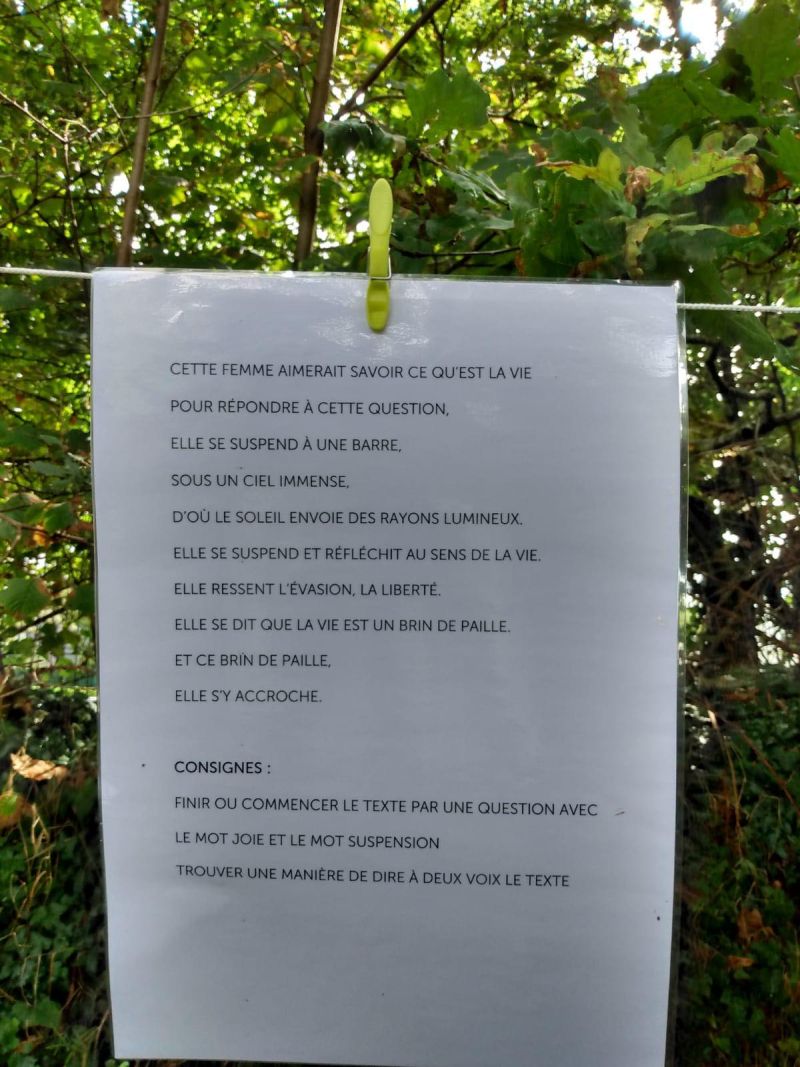 CETTE FEMME AIMERAIT SAVOIR CE QU'EST LA VIE
POUR RÉPONDRE À CETTE QUESTION,
ELLE SE SUSPEND À UNE BARRE,
SOUS UN CIEL IMMENSE,
D'OÙ LE SOLEIL ENVOIE DES RAYONS LUMINEUX.
ELLE SE SUSPEND ET RÉFLÉCHIT AU SENS DE LA VIE.
ELLE RESSENT L'ÉVASION, LA LIBERTÉ.
ELLE SE DIT QUE LA VIE EST UN BRIN DE PAILLE.
ET CE BRIN DE PAILLE,
ELLE S'Y ACCROCHE.
CONSIGNES :
FINIR OU COMMENCER LE TEXTE PAR UNE QUESTION AVEC
LE MOT JOIE ET LE MOT SUSPENSION
TROUVER UNE MANIÈRE DE DIRE À DEUX VOIX LE TEXTE